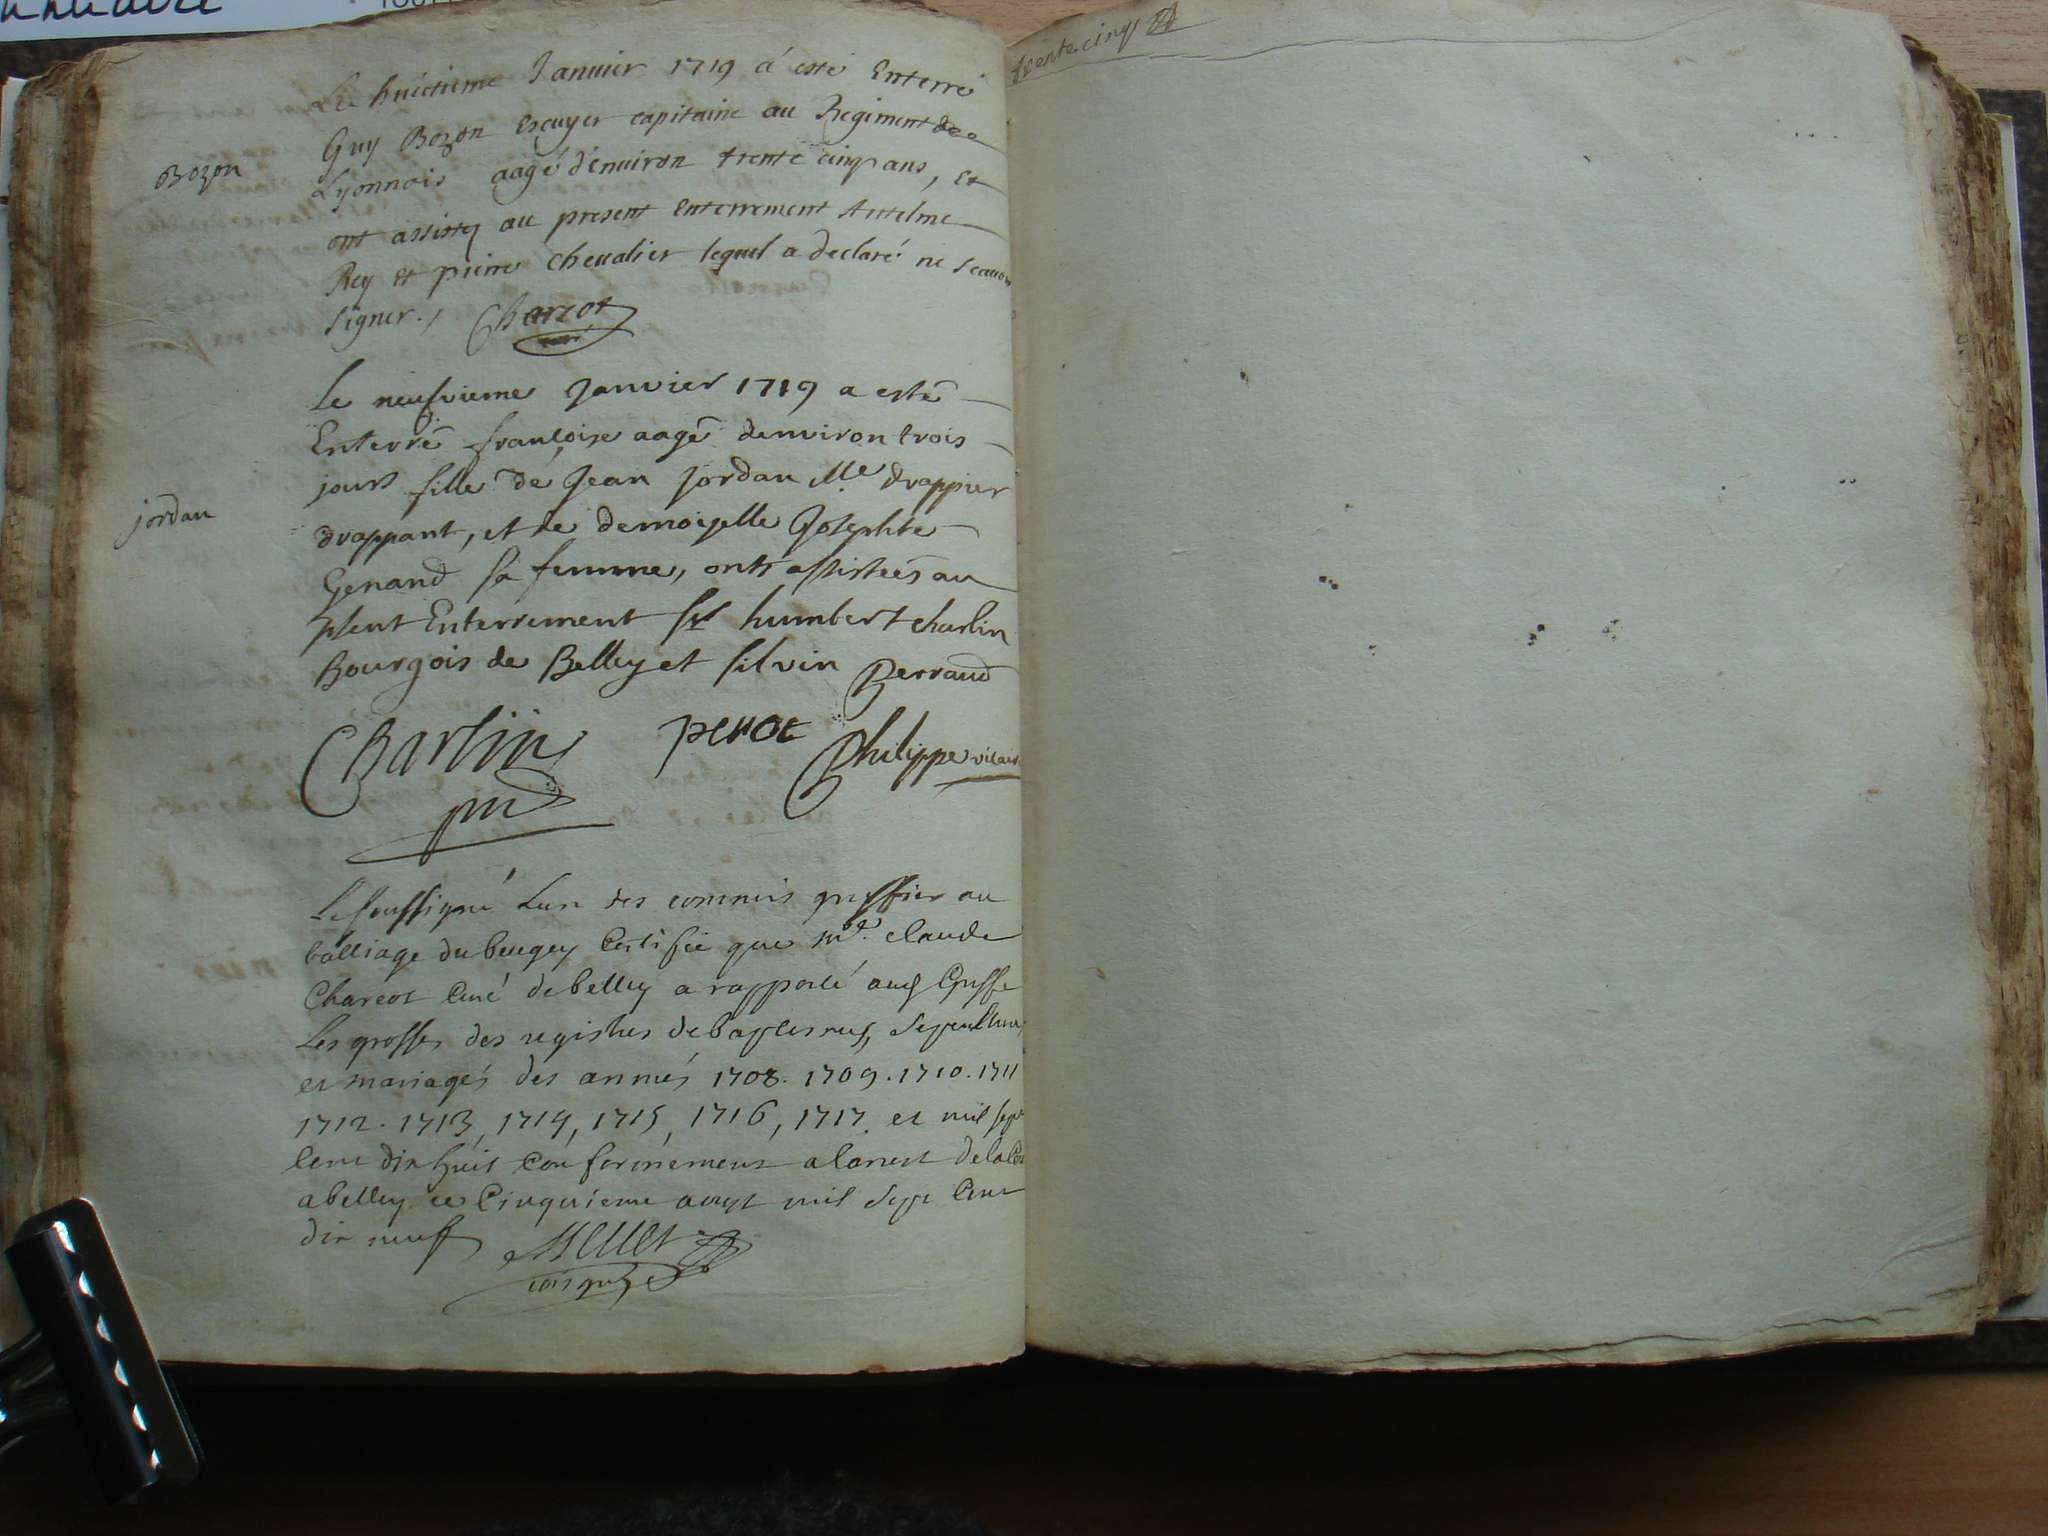 Le huictieme Janvier 1719 á esté Enterré
Guy Bozon Escuyer capitaine au Regiment de
Bozon
Lyonnois aagé d'environ trente cinq ans, et
ont assisté au present Enterrement Antelme
Rey et pierre chevalier lequel a declaré ne scavoir
signer./ Charcot
curé
Le neufvieme Janvier 1719 a esté
Enterré françoise aagé denviron trois
jours fille de Jean Jordan Me drappier
jordan
drappant, et de demoiselle Josephte
Genand sa femme, onts assistées au
pſent Enterrement sr humbert charlin
Bourgois de Belley et silvin Perraud
Charlin perot Philippe vicaire
Le soussigné Lun des commis greffier au
balliage du beugey Certifie que mre claude
Charcot Curé de belley a rapporté au Greffe
Les grosses des registres de baptesmes, sepultures
et mariages des années 1708. 1709. 1710. 1711
1712. 1713, 1714, 1715, 1716, 1717. et mil sept
cent dix huit Conformement a larrest de la
a belley ce Cinquieme aoust mil sept Cent
dix neuf
trente cinq